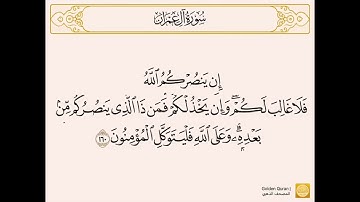 سُورَةُ آلِ عِمْرَانَ
إِن يَنصُرْكُمُ ٱللَّهُ
فَلَا غَالِبَ لَكُمْ ۖ وَإِن يَخْذُلْكُمْ فَمَن ذَا ٱلَّذِى يَنصُرُكُم مِّنۢ
بَعْدِهِۦ ۗ وَعَلَى ٱللَّهِ فَلْيَتَوَكَّلِ ٱلْمُؤْمِنُونَ ١٦٠
Golden Quran |
المصحف الذهبي